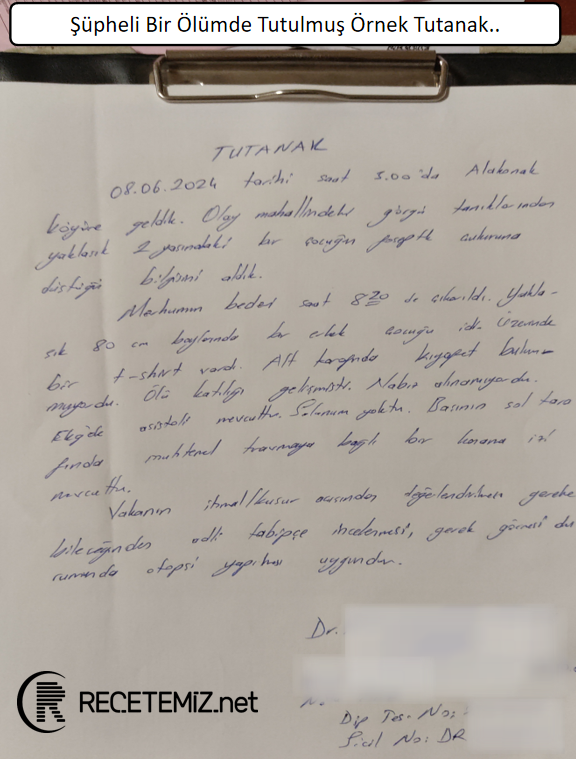 Şüpheli Bir Ölümde Tutulmuş Örnek Tutanak..
TUTANAK
08.06.2024 tarihi saat 5.00'da Alakonak
köyüne geldik. Olay mahallindeki görgü tanıklarından
yaklaşık 2 yaşındaki bir çocuğun foseptik çukuruna
düştüğü bilgisini aldık.
Merhumun bedeni saat 8 20 de çıkarıldı. Yakla-
şık 80 cm boylarında bir erkek çocuğu idi. Üzerinde
bir t-shirt vardı. Alt tarafında kıyafet bulun-
muyordu. Ölü katılığı gelişmişti. Nabız alınamıyordu.
EKG'de asistoli mevcuttu. Solunum yoktu. Başının sol tara
fında muhtemel travmaya bağlı bir kanama izi
mevcuttu.
Vakanın ihmal/kusur açısından değerlendirilmesi gereke
bileceğinden adli tabipçe incelenmesi, gerek görmesi du
rumunda otopsi yapılması uygundur.
Dr.
Dip Tes. No:
Sicil No: DR
RECETEMIZ.net